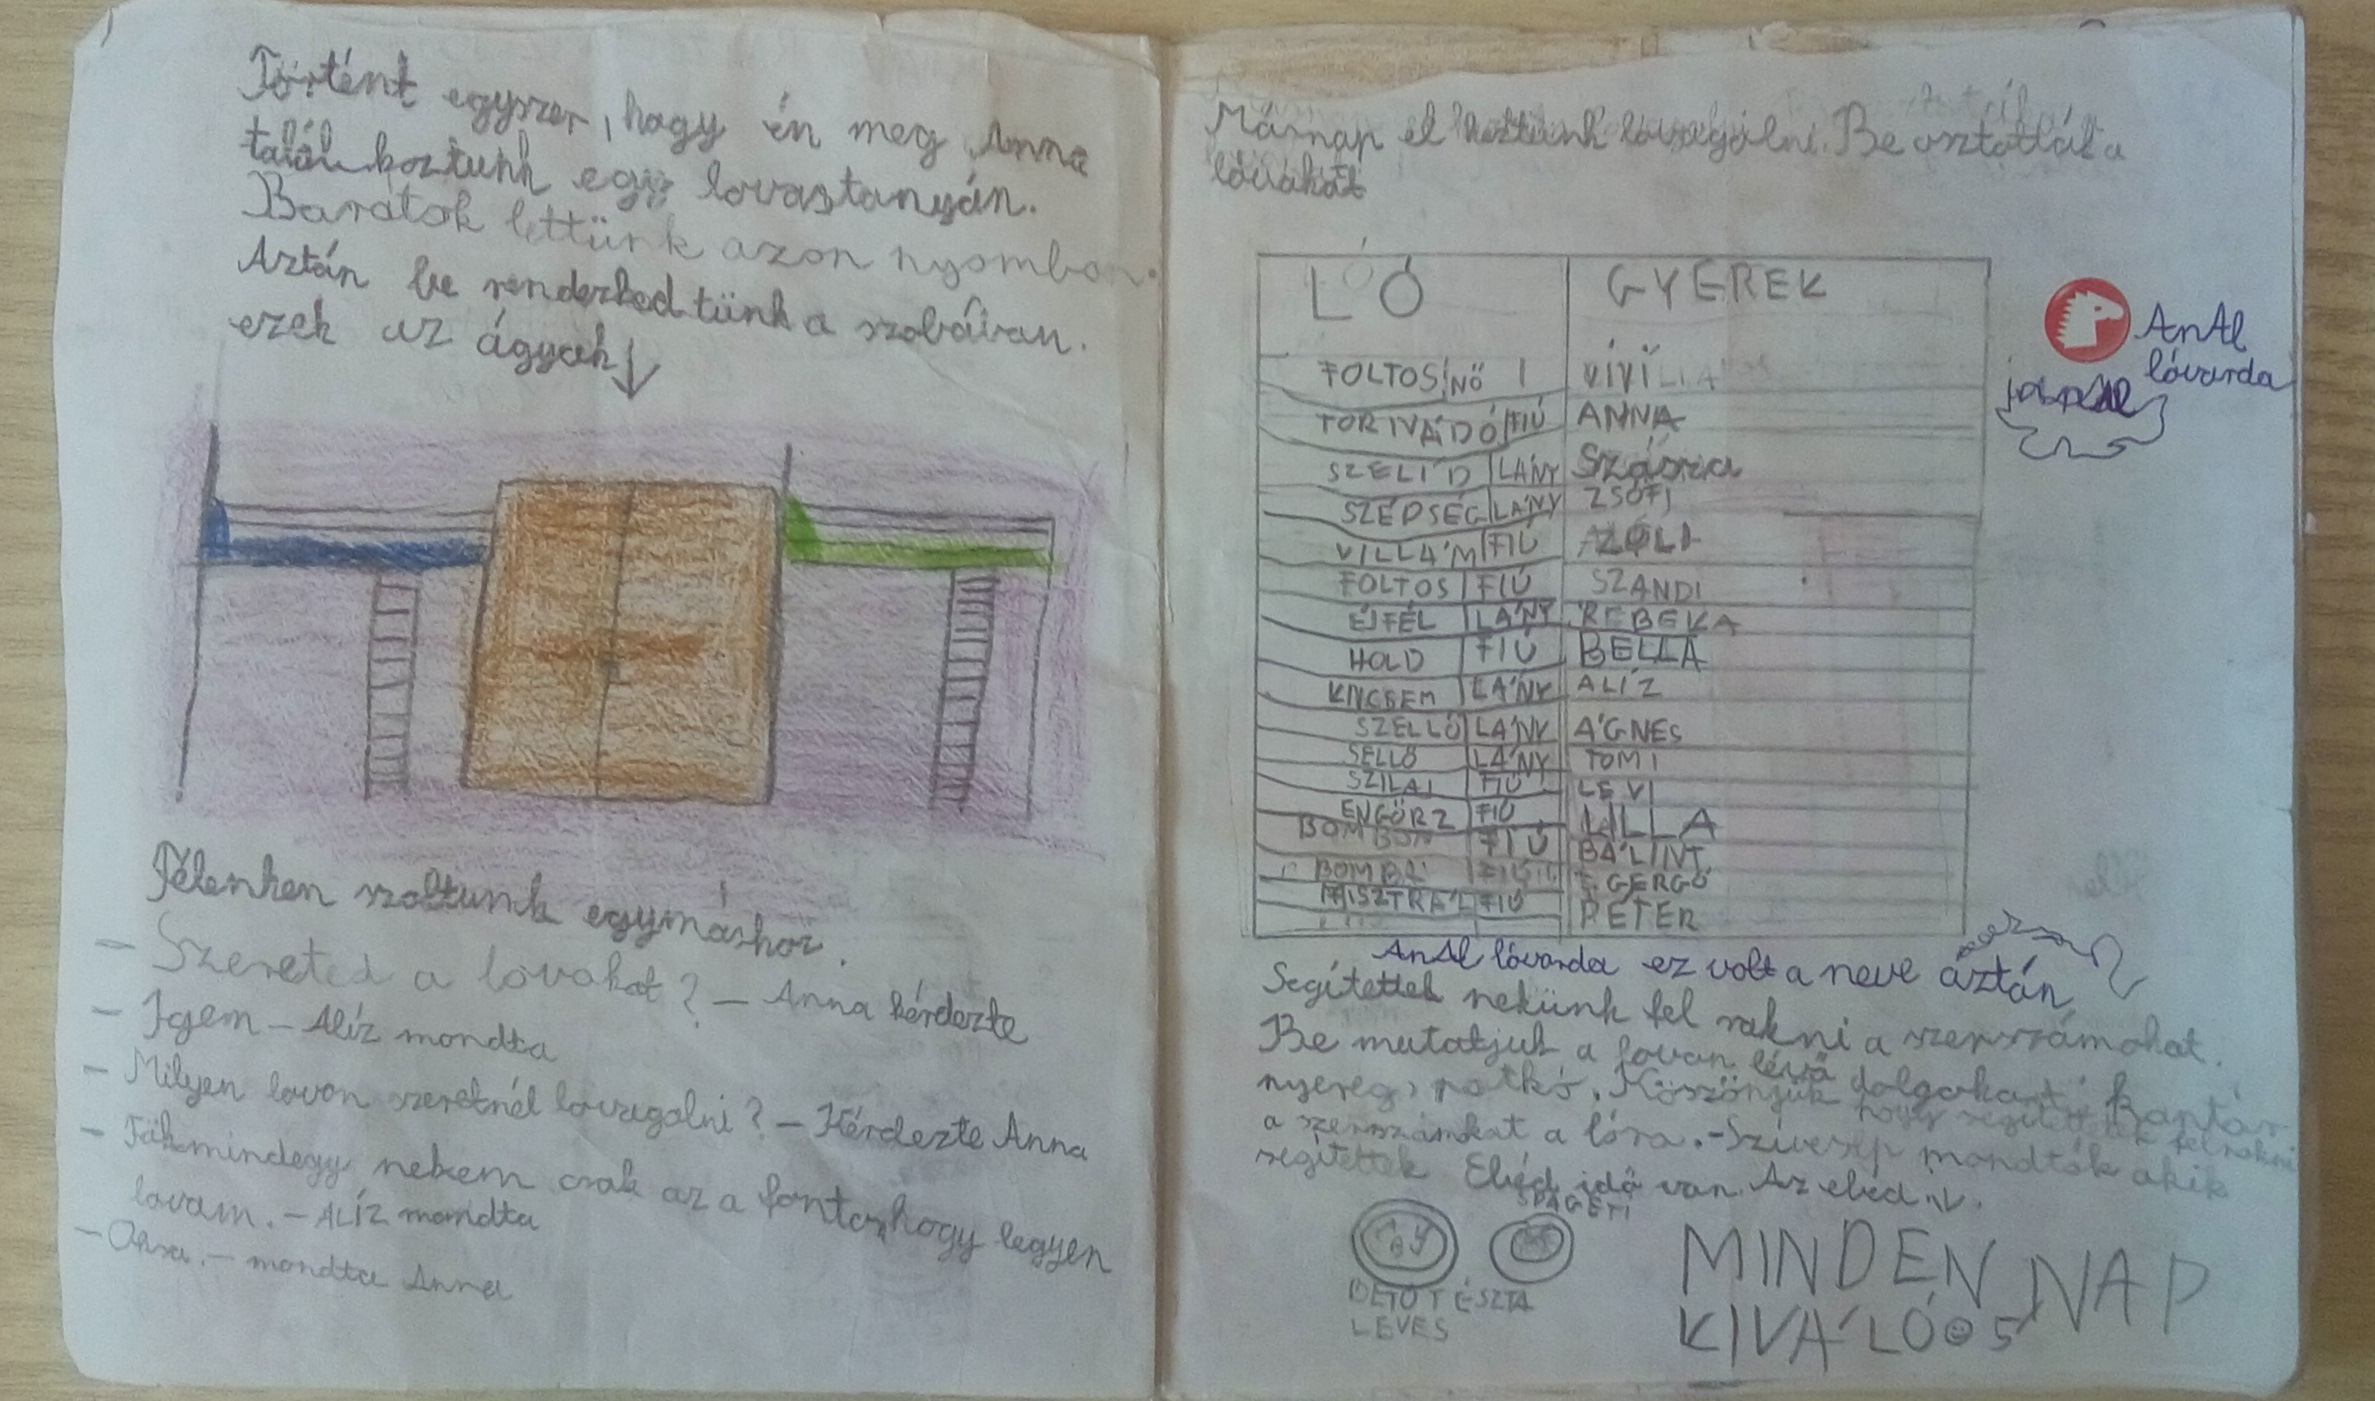 Történt egyszer, hogy én meg Anna
talál koztunk egy lovastanyán.
Barátok lettünk azon nyomban.
Aztán be rendezked tünk a szobában.
ezek az ágyak ↓
Félenken szoltunk egymáshoz.
- Szereted a lovakat? - Anna kérdezte
- Igem - Alíz mondta
- Milyen lovon szeretnél lovagolni? - Kérdezte Anna
- Tökmindegy nekem csak az a fontos, hogy legyen
lovam. - ALÍZ mondta
- Oksa. - mondta Anna
Másnap el keztünk lovagolni. Be osztották a
lovakat
LÓ GYEREK
FOLTOS NŐ VIVI
TORIVÁDÓ FIÚ ANNA
SZELÍD LÁNY
SZÉPSÉG LÁNY ZSÓFI
VILLÁM FIÚ ZOLI
FOLTOS FIÚ SZANDI
ÉJFÉL LÁNY REBEKA
HOLD FIÚ BELLA
KINCSEM LÁNY ALÍZ
SZELLŐ LÁNY ÁGNES
SELLŐ LÁNY TOMI
SZILAJ FIÚ LEVI
ENGÖRZ FIÚ LILLA
BOMBON FIÚ BÁLINT
BOMBA FIÚ GERGŐ
MISZTRÁL FIÚ PÉTER
AnAl
lóvarda
AnAl lóvarda ez volt a neve áztán
Segítettek nekünk fel rakni a szerszámokat.
Be mutatjuk a lovan lévő dolgokat: Kantár
nyereg, patkó. Köszönjük hogy segítettetek felrakni
a szerszámkat a lóra. - Szívesen mondták akik
segítettek Ebéd idő van. Az ebéd ↓.
SPAGETI
BETŰ TÉSZTA
LEVES
MINDEN NAP
KIVÁLÓ 5